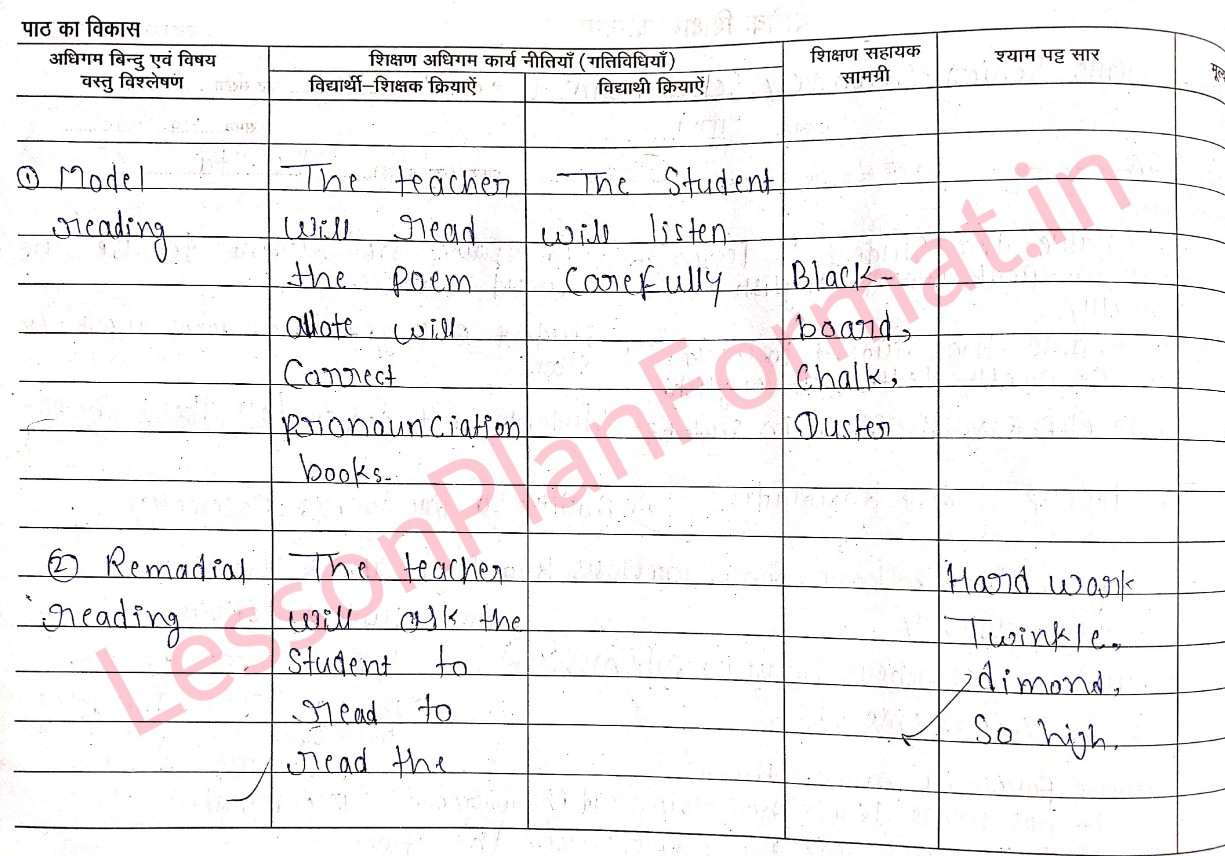 पाठ का विकास
अधिगम बिन्दु एवं विषय
वस्तु विश्लेषण
शिक्षण अधिगम कार्य नीतियाँ (गतिविधियाँ)
विद्यार्थी–शिक्षक क्रियाऐं
विद्याथी क्रियाऐं
शिक्षण सहायक
सामग्री
श्याम पट्ट सार
① Model
reading
The teacher
will read
the poem
allote will
Correct
pronounciation
books.
The Student
will listen
Carefully
Black-
board,
Chalk,
Duster
② Remadial
reading
The teacher
will ask the
Student to
read to
read the
Hard work
Twinkle,
dimond,
So high.
LessonPlanFormat.in